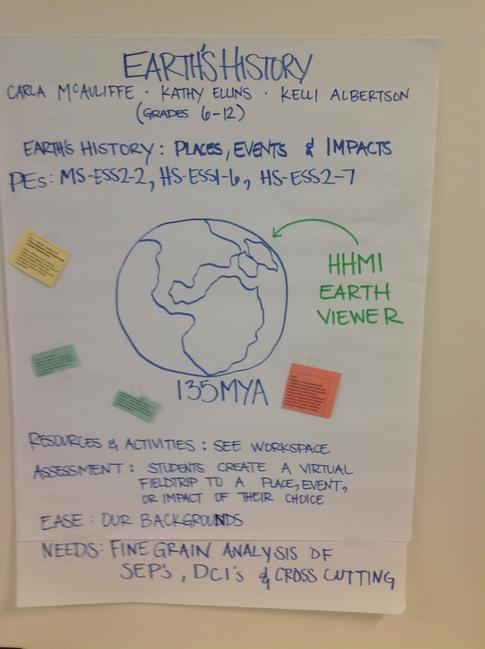 EARTH'S HISTORY
CARLA MCAULIFFE · KATHY ELLINS · KELLI ALBERTSON
(GRADES 6-12)
EARTH'S HISTORY: PLACES, EVENTS & IMPACTS
PEs: MS-ESS2-2, HS-ESS1-6, HS-ESS2-7
HHMI
EARTH
VIEWER
135MYA
RESOURCES & ACTIVITIES: SEE WORKSPACE
ASSESSMENT: STUDENTS CREATE A VIRTUAL
FIELDTRIP TO A PLACE, EVENT,
OR IMPACT OF THEIR CHOICE
EASE: OUR BACKGROUNDS
NEEDS: FINE GRAIN ANALYSIS OF
SEP'S, DCI'S & CROSS CUTTING